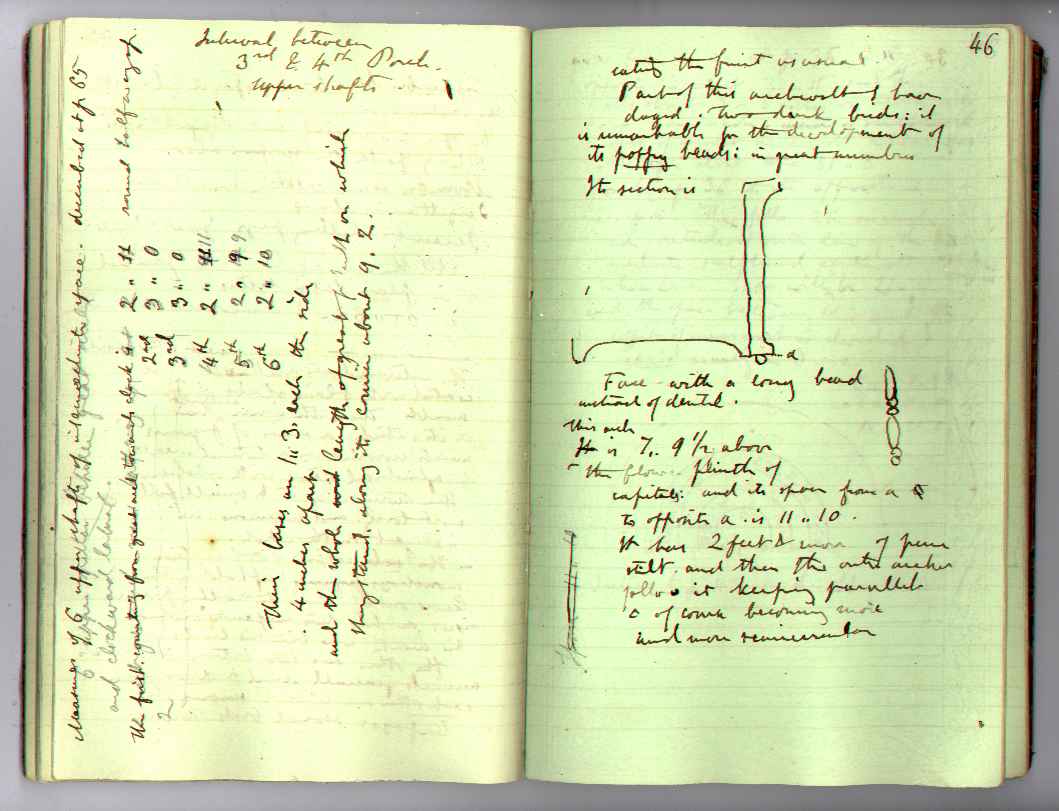 Interval between
3rd & 4th Porch.
upper shafts
Measures of 6 upper shafts of intermediate space. described at p 65
and clockward
the first. counting from great and towards clock is 2 " 11 round halfway up.
2nd 3 " 0
3rd 3 " 0
4th 2 " 11
5th 2 " 9
6th 2 " 10
Their bases an 1 " 3. each the side,
4 inches apart
and the whole length of great plinth on which
they stand. along its cornice about 9. 2.
46
eating the fruit as usual.
Part of this archivolt I have
daged. Two drank birds: it
is remarkable for the development of
its poppy beads: in great numbers
Its section is
a
Face with a long bead
instead of dentil.
This arch
It is 7 " 9 1/2 above
the flower plinth of
capitals: and its span from a
to opposite a. is 11 " 10.
It has 2 feet & more of pure
stilt. and then the outer arches
follow it keeping parallel
of course becoming more
and more semicircular